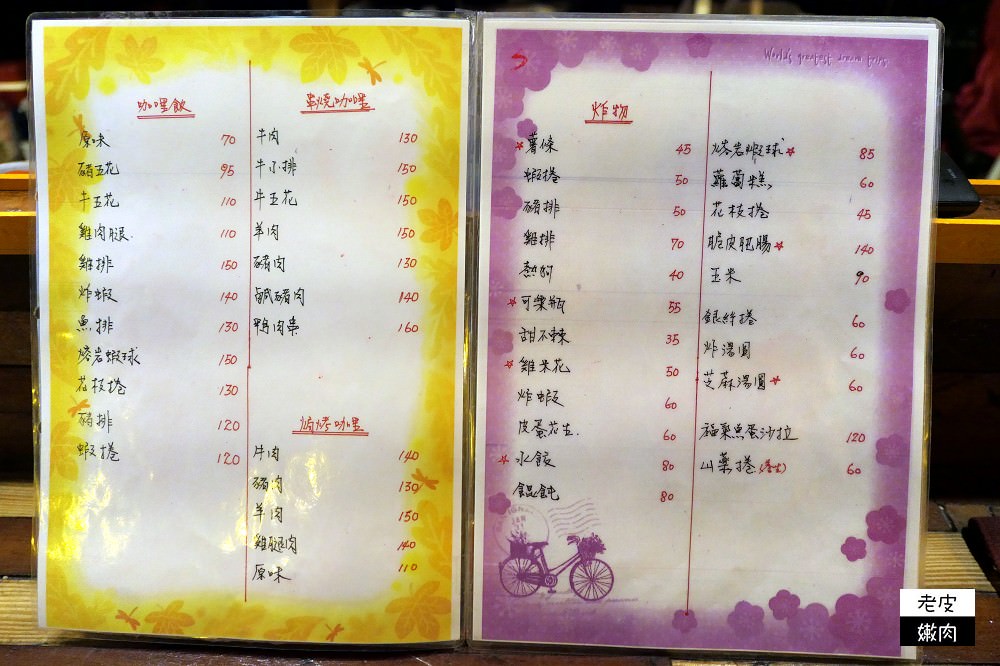 咖哩飯
原味 70
豬五花 95
牛五花 110
雞肉腿 110
雞排 150
炸蝦 140
魚排 130
熔岩蝦球 150
花枝捲 130
豬排 120
蝦捲 120
串燒咖哩
牛肉 130
牛小排 150
牛五花 150
羊肉 150
豬肉 130
鹹豬肉 140
鴨肉串 160
焗烤咖哩
牛肉 140
豬肉 130
羊肉 150
雞腿肉 140
原味 110
World's greatest dream fairs
炸物
薯條 45
蝦捲 50
豬排 50
雞排 70
熱狗 40
可樂瓶 55
甜不辣 35
雞米花 50
炸蝦 60
皮蛋花生 60
水餃 80
餛飩 80
熔岩蝦球 85
蘿蔔糕 60
花枝捲 45
脆皮肥腸 140
玉米 90
銀絲捲 60
炸湯圓 60
芝蔴湯圓 60
福袋魚蛋沙拉 120
山藥捲 60
老皮
嫩肉